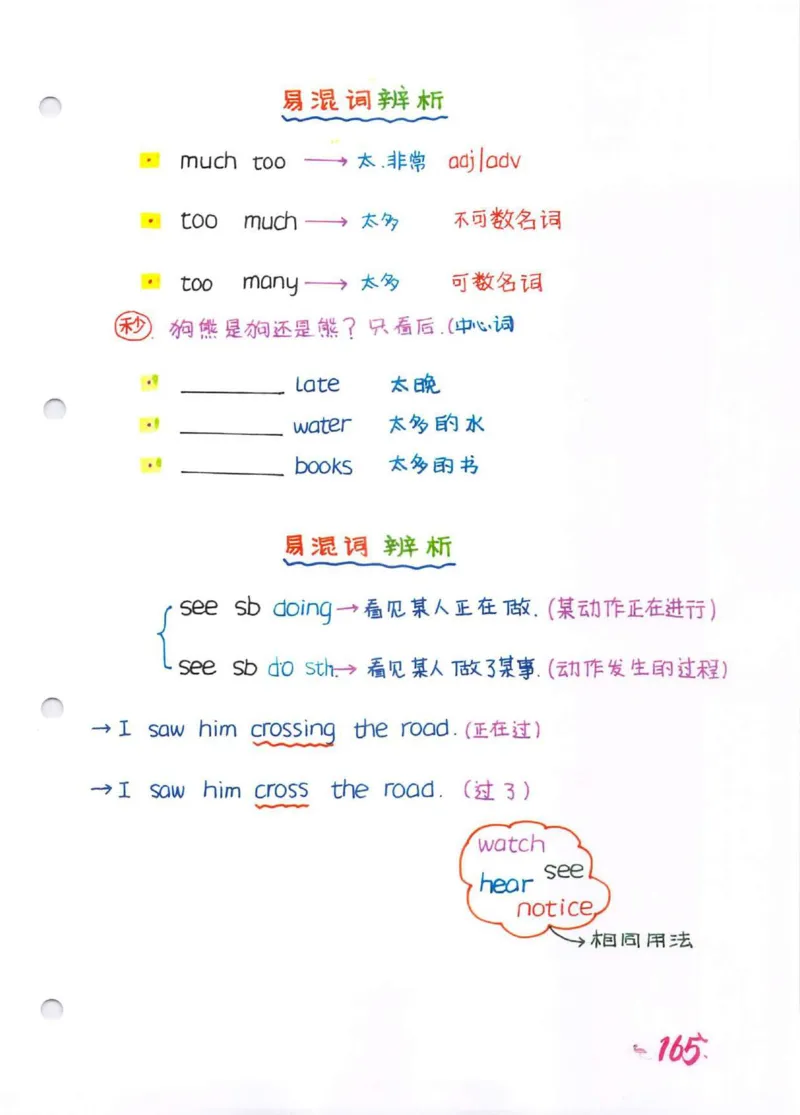 易混词辨析
much too → 太.非常 adj/adv
too much → 太多 不可数名词
too many → 太多 可数名词
秒. 狗熊是狗还是熊? 只看后.(中心词
________ late 太晚
________ water 太多的水
________ books 太多的书
易混词 辨析
see sb doing → 看见某人正在做. (某动作正在进行)
see sb do sth. → 看见某人做了某事. (动作发生的过程)
→ I saw him crossing the road. (正在过)
→ I saw him cross the road. (过了)
watch
hear see
notice
→ 相同用法
165